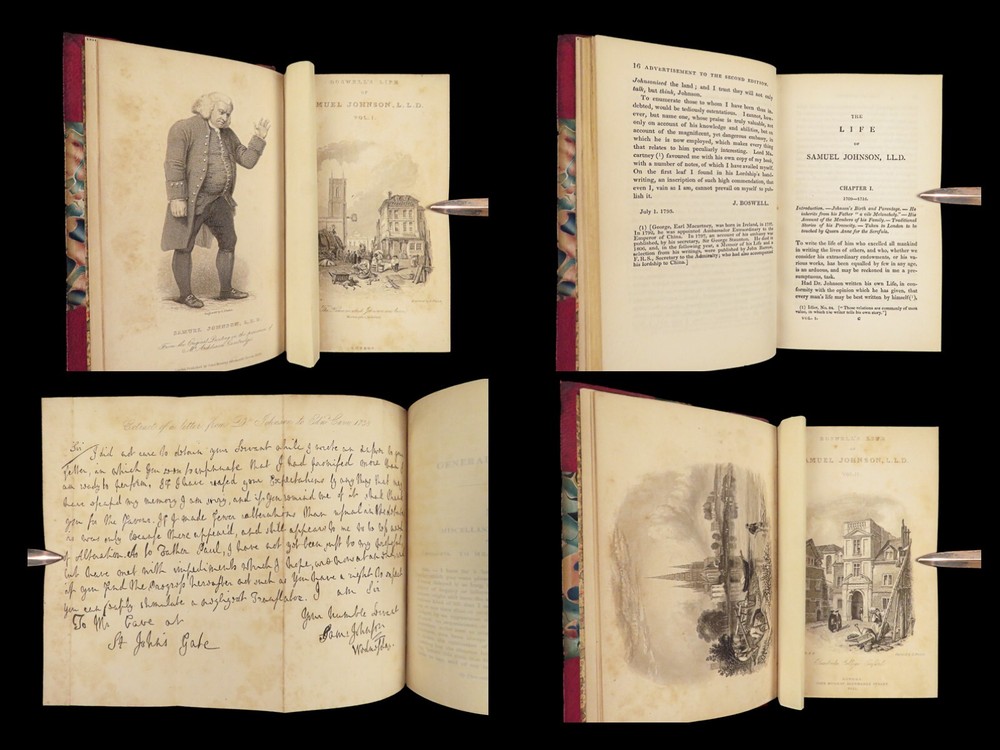 BOSWELL'S LIFE
OF
MUEL JOHNSON, L.L.D.
VOL. I.
SAMUEL JOHNSON, L.L.D.
From the Original Painting in the possession of
16 ADVERTISEMENT TO THE SECOND EDITION.
Johnsonised the land; and I trust they will not only
talk, but think, Johnson.
To enumerate those to whom I have been thus in-
debted, would be tediously ostentatious. I cannot, how-
ever, but name one, whose praise is truly valuable, not
only on account of his knowledge and abilities, but on
account of the magnificent, yet dangerous embassy, in
which he is now employed, which makes every thing
that relates to him peculiarly interesting. Lord Ma-
cartney (1) favoured me with his own copy of my book,
with a number of notes, of which I have availed myself.
On the first leaf I found in his Lordship's hand-
writing, an inscription of such high commendation, that
even I, vain as I am, cannot prevail on myself to pub-
lish it.
J. BOSWELL.
July 1. 1793.
(1) [George, Earl Macartney, was born in Ireland, in 1737.
In 1792, he was appointed Ambassador Extraordinary to the
Emperor of China. In 1797, an account of his embassy was
published, by his secretary, Sir George Staunton. He died in
1806, and, in the following year, a Memoir of his Life and a
selection from his writings, were published by John Barrow,
F.R.S., Secretary to the Admiralty; who had also accompanied
his lordship to China.]
THE
LIFE
OF
SAMUEL JOHNSON, LL.D.
CHAPTER I.
1709—1716.
Introduction. — Johnson's Birth and Parentage. — He
inherits from his Father "a vile Melancholy." — His
Account of the Members of his Family. — Traditional
Stories of his Precocity. — Taken to London to be
touched by Queen Anne for the Scrofula.
To write the life of him who excelled all mankind
in writing the lives of others, and who, whether we
consider his extraordinary endowments, or his va-
rious works, has been equalled by few in any age,
is an arduous, and may be reckoned in me a pre-
sumptuous, task.
Had Dr. Johnson written his own Life, in con-
formity with the opinion which he has given, that
every man's life may be best written by himself(1),
(1) Idler, No. 84. ["Those relations are commonly of most
value, in which the writer tells his own story."]
VOL. I. C
Extract of a letter from Dr. Johnson to Edwd Cave 1738
Sir I did not care to detain your Servant while I wrote an answer to your
Letter, in which you seem to insinuate that I had promised more than I
am ready to perform. If I have raised your Expectations by any thing that may
have escap'd my memory I am sorry, and if you remind me of it shall thank
you for the favour. If I made fewer alterations than usual in the
it was only because there appear'd, and still appears to me to be less need
of Alteration.
to Father Paul, I have not yet been just to my proposal
but have met with impediments which I hope, are
if you find the Progress hereafter not such as you have a right to expect
you can easily stimulate a negligent Translator. I am Sir
Your humble Servant
Sam: Johnson
To Mr Cave at
St John's Gate
GENERAL
BOSWELL'S LIFE
AMUEL JOHNSON, L.L.D.
VOL. II.
Pembroke College Oxford
LONDON